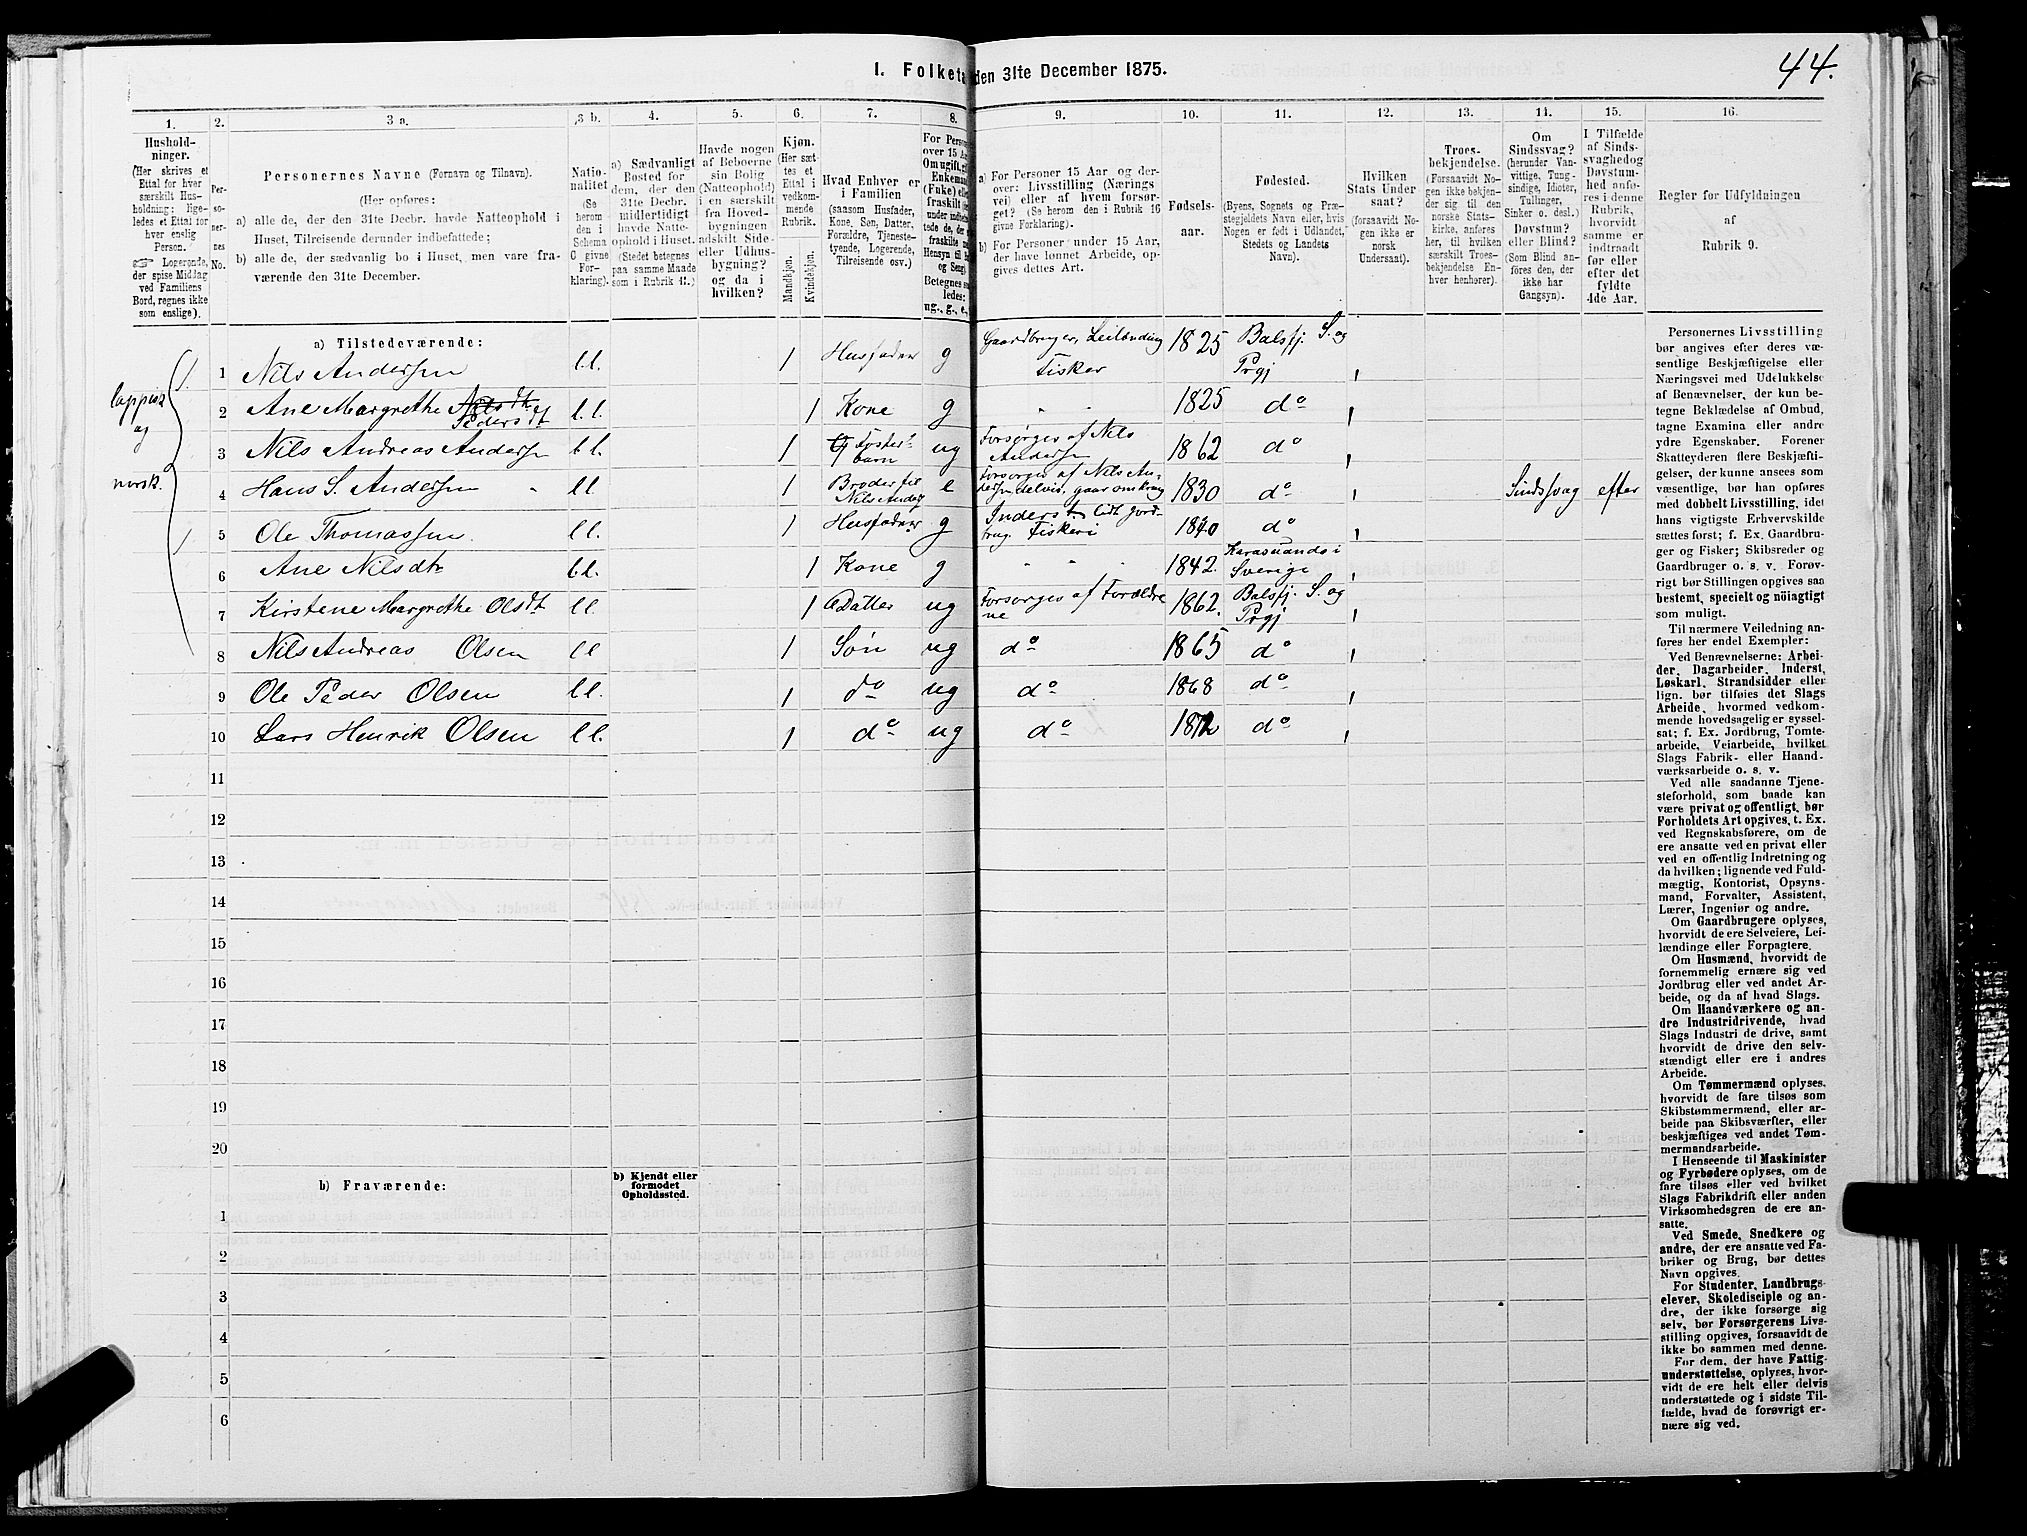 44.
I. Folketæ den 31te December 1875.
1. 2. 3 a. 3 b. 4. 5. 6. 7. 8. 9. 10. 11. 12. 13. 14. 15. 16.
Hushold-
ninger.
(Her skrives et
Ettal for hver
særskilt Hus-
holdning; lige-
ledes et Ettal for
hver enslig
Person.
☞ Logerende,
der spise Middag
ved Familiens
Bord, regnes ikke
som enslige).
Per-
so-
ner-
nes
No.
Personernes Navne (Fornavn og Tilnavn).
(Her opføres:
a) alle de, der den 31te Decbr. havde Natteophold i
Huset, Tilreisende derunder indbefattede;
b) alle de, der sædvanlig bo i Huset, men vare fra-
værende den 31te December.
Natio-
nalitet
(Se
herom
den i
Schema
C givne
For-
klaring).
a) Sædvanligt
Bosted for
dem, der den
31te Decbr.
midlertidigt
havde Natte-
ophold i Huset.
(Stedet betegnes
paa samme Maade
som i Rubrik 11.)
Havde nogen
af Beboerne
sin Bolig
(Natteophold)
i en særskilt
fra Hoved-
bygningen
adskilt Side-
eller Udhus-
bygning?
og da i
hvilken?
Kjøn.
(Her sæt-
tes et
Ettal i
vedkom-
mende
Rubrik.
Mandkjøn.
Kvindekjøn.
Hvad Enhver er
i Familien
(saasom Husfader,
Kone, Søn, Datter,
Forældre, Tjeneste-
tyende, Logerende,
Tilreisende osv.).
For Perso
over 15 Aa
Om ugift, gi
Enkeman
(Fnke) elle
fraskilt
under indbefat-
tede de, der e
fraskilte
Hensyn til b
og Seng)
Betegnes s
ledes:
ug., g., e.,
a) For Personer 15 Aar og der-
over: Livsstilling (Nærings
vei) eller af hvem forsør-
get? (Se herom den i Rubrik 16
givne Forklaring).
b) For Personer under 15 Aar,
der have lønnet Arbeide, op-
gives dettes Art.
Fødsels-
aar.
Fødested.
(Byens, Sognets og Præ-
stegjeldets Navn eller, hvis
Nogen er født i Udlandet,
Stedets og Landets
Navn).
Hvilken
Stats Under
saat?
(forsaavidt No-
gen ikke er
norsk
Undersaat).
Troes-
bekjendelse.
(Forsaavidt No-
gen ikke bekjen-
der sig til den
norske Stats-
kirke, anføres
her, til hvilken
særskilt Troes-
bekjendelse En-
hver henhører).
Om
Sindssvag?
(herunder Van-
vittige, Tung-
sindige, Idioter,
Tullinger,
Sinker o. desl.)
Døvstum?
eller Blind?
(Som Blind an-
føres den, der
ikke har
Gangsyn).
I Tilfælde
af Sinds-
svaghed og
Døvstum-
hed anfø-
res i denne
Rubrik,
hvorvidt
samme er
indtraadt
før eller
efter det
fyldte
4de Aar.
Regler før Udfyldningen
af
Rubrik 9.
a) Tilstedeværende:
lappisk
og
norsk.
1 Nils Andersen l.l. 1 Husfader g Gaardbruger, Leilænding Fisker 1825 Balsfj. S. og Prgj
2 Ane Margrethe Nilsdt Pedersdt l.l. 1 Kone g " " 1825 do
3 Nils Andreas Andersen l.l. 1 Fosterbarn ug Forsørges af Nils Andersen 1862 do
4 Hans S. Andersen l.l. 1 Broder til Nils Anders e Forsørges af Nils Andersen, delvis, gaar omkring 1830 do Sindssvag efter
5 Ole Thomassen l.l. 1 Husfader g Inderst, lidt jordbrug. Fiskeri 1840 do
6 Ane Nilsdtr l.l. 1 Kone g " " 1842. Karasuando i Sverige
7 Kirstene Margrethe Olsdt l.l. 1 Datter ug Forsørges af Forældrene 1862. Balsfj. S. og Prgj
8 Nils Andreas Olsen l.l 1 Søn ug do 1865 do
9 Ole Peder Olsen l.l. 1 do ug do 1868 do
10 Lars Henrik Olsen l.l. 1 do ug do 1872 do
11
12
13
14
15
16
17
18
19
20
b) Fraværende:
b) Kjendt eller
formodet
Opholdssted.
1
2
3
4
5
6
Personernes Livsstilling
bør angives efter deres væ-
sentlige Beskjæftigelse eller
Næringsvei med Udelukkelse
af Benævnelser, der kun be-
tegne Beklædelse af Ombud,
tagne Examina eller andre
ydre Egenskaber. Forener
Skatteyderen flere Beskjæfti-
gelser, der kunne ansees som
væsentlige, bør han opføres
med dobbelt Livsstilling, idet
hans vigtigste Erhvervskilde
sættes først; f. Ex. Gaardbru-
ger og Fisker; Skibsreder og
Gaardbruger o. s. v. Forøv-
rigt bør Stillingen opgives saa
bestemt, specielt og nöiagtigt
som muligt.
Til nærmere Veiledning an-
føres her endel Exempler:
Ved Benævnelserne: Arbei-
der, Dagarbeider, Inderst,
Løskarl, Strandsidder eller
lign. bør tilføies det Slags
Arbeide, hvormed vedkom-
mende hovedsagelig er syssel-
sat; f. Ex. Jordbrug, Tomte-
arbeide, Veiarbeide, hvilket
Slags Fabrik- eller Haand-
værksarbeide o. s. v.
Ved alle saadanne Tjene-
steforhold, som baade kan
være privat og offentligt, bør
Forholdets Art opgives, t. Ex.
ved Regnskabsførere, om de
ere ansatte ved en privat eller
ved en offentlig Indretning og
da hvilken; lignende ved Fuld-
mægtig, Kontorist, Opsyns-
mand, Forvalter, Assistent,
Lærer, Ingeniør og andre.
Om Gaardbrugere oplyses,
hvorvidt de ere Selveiere, Lei-
lændinge eller Forpagtere.
Om Husmænd, hvorvidt de
fornemmelig ernære sig ved
Jordbrug eller ved andet Ar-
beide, og da af hvad Slags.
Om Haandværkere og an-
dre Industridrivende, hvad
Slags Industri de drive, samt
hvorvidt de drive den selv-
stændigt eller ere i andres
Arbeide.
Om Tømmermænd oplyses,
hvorvidt de fare tilsøs som
Skibstømmermænd, eller ar-
beide paa Skibsværfter, eller
beskjæftiges ved andet Tøm-
mermandsarbeide.
I Henseende til Maskinister
og Fyrbødere oplyses, om de
fare tilsøs eller ved hvilket
Slags Fabrikdrift eller anden
Virksomhedsgren de ere an-
satte.
Ved Smede, Snedkere og
andre, der ere ansatte ved Fa-
briker og Brug, bør dettes
Navn opgives.
For Studenter, Landbrugs-
elever, Skoledisciple og an-
dre, der ikke forsørge sig
selv, bør Forsørgerens Livs-
stilling opgives, forsaavidt de
ikke bo sammen med denne.
For dem, der have Fattig-
understøttelse, oplyses, hvor-
vidt de ere helt eller delvis
understøttede og i sidste Til-
fælde, hvad de forøvrigt er-
nære sig ved.